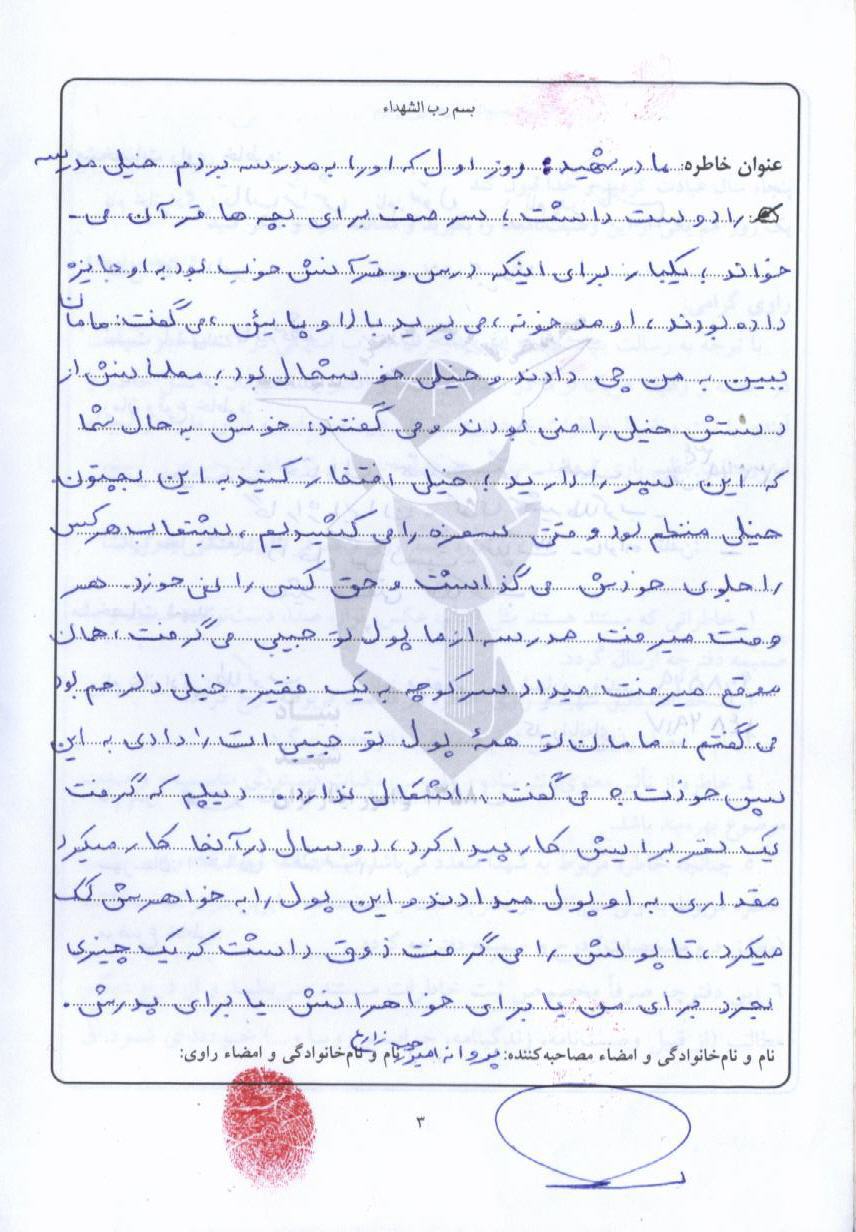 بسم رب الشهداء
عنوان خاطره: مادر شهید: روز اول که او را به مدرسه بردم خیلی مدرسه
را دوست داشت، سر صف برای بچه ها قرآن می-
خواند، یکبار برای اینکه درس و قرآنش خوب بود به او جایزه
داده بودند، اومد خونه، می پرید بالا و پایین، می گفت: مامان
ببین به من چی دادند و خیلی خوشحال بود، معلمانش از
دستش خیلی راضی بودند و می گفتند: خوش به حال شما
که این پسر را دارید، خیلی افتخار کنید به این بچتون.
خیلی منظم بود وقتی سفره را می کشیدیم، بشقاب هر کس
را جلوی خودش می گذاشت و حق کسی را نمی خورد. هر
وقت میرفت مدرسه از ما پول تو جیبی می گرفت، همان
موقع میرفت میداد سر کوچه به یک فقیر. خیلی دلرحم بود
می گفتم، مامان تو همهٔ پول تو جیبی ات را دادی به این
پس خودت؟ می گفت: اشکال ندارد. دیپلم که گرفت
یک نفر برایش کار پیدا کرد، دو سال در آنجا کار میکرد
مقداری به او پول میدادند و این پول را به خواهرش کمک
میکرد، تا پولش را می گرفت ذوق داشت که یک چیزی
بخرد برای من یا برای خواهرانش یا برای پدرش.
نام و نام‌خانوادگی و امضاء مصاحبه‌کننده: پروانه نام و نام‌خانوادگی و امضاء راوی:
۳